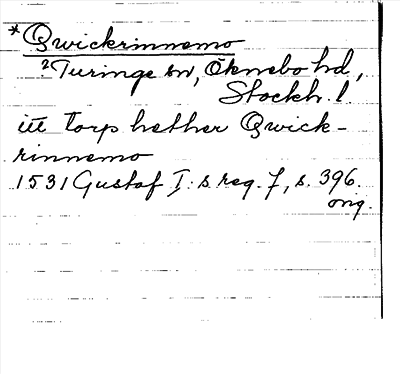 *Qwickrinnemo
?Turinge sn, Öknebo hd,
Stockh. l.
itt torp hether Qwick-
rinnemo
1531 Gustaf I:s reg. 7, s. 396.
orig.